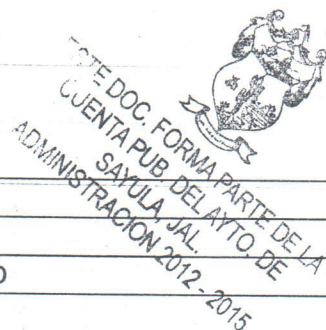 ESTE DOC. FORMA PARTE DE LA
CUENTA PUB. DEL AYTO. DE
SAYULA, JAL.
ADMINISTRACION 2012 - 2015
O